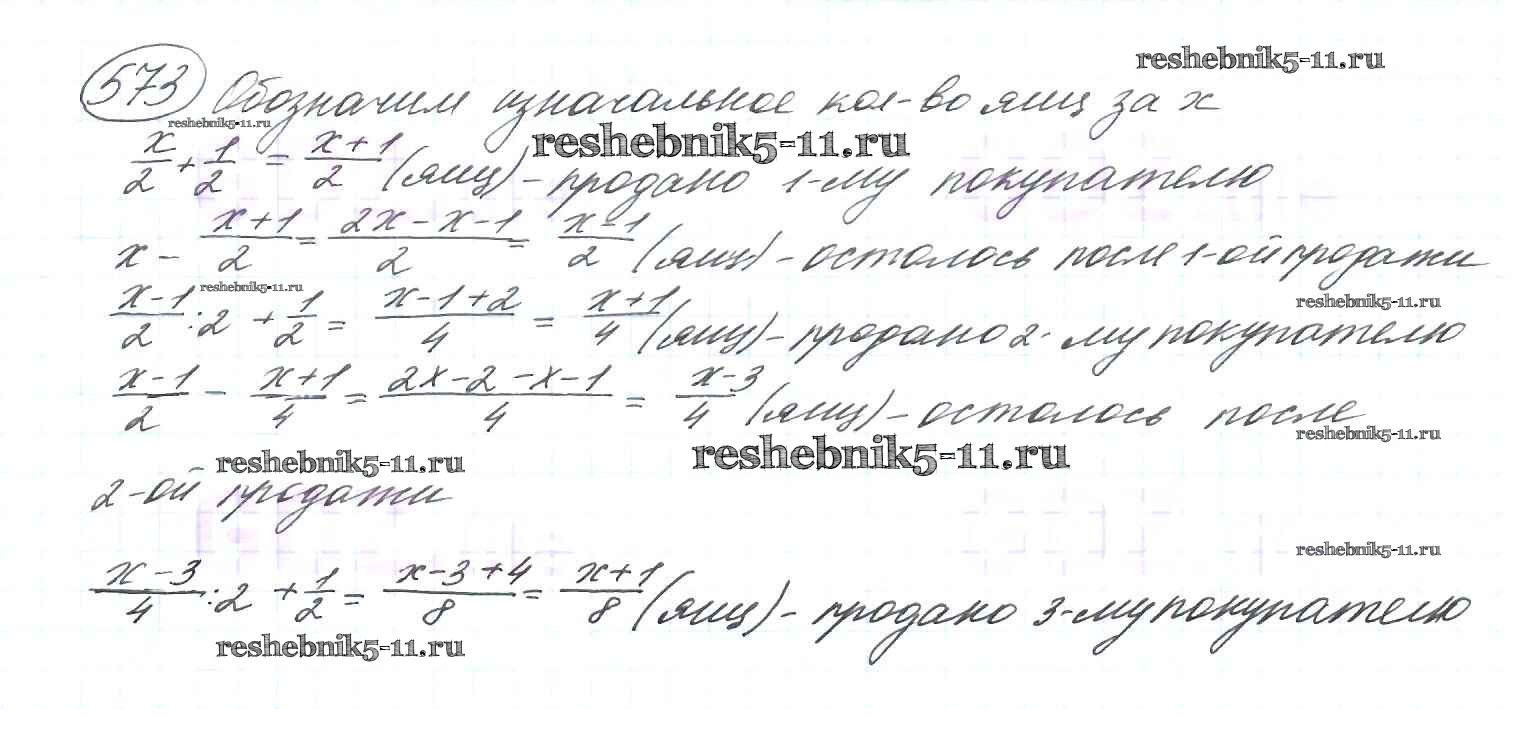 reshebnik5-11.ru
573 Обозначим изначальное кол-во яиц за x
reshebnik5-11.ru
reshebnik5-11.ru
x/2 + 1/2 = (x+1)/2 (яиц) - продано 1-му покупателю
x - (x+1)/2 = (2x-x-1)/2 = (x-1)/2 (яиц) - осталось после 1-ой продажи
reshebnik5-11.ru
reshebnik5-11.ru
(x-1)/2 : 2 + 1/2 = (x-1+2)/4 = (x+1)/4 (яиц) - продано 2-му покупателю
(x-1)/2 - (x+1)/4 = (2x-2-x-1)/4 = (x-3)/4 (яиц) - осталось после
reshebnik5-11.ru
reshebnik5-11.ru
reshebnik5-11.ru
2-ой продажи
reshebnik5-11.ru
(x-3)/4 : 2 + 1/2 = (x-3+4)/8 = (x+1)/8 (яиц) - продано 3-му покупателю
reshebnik5-11.ru